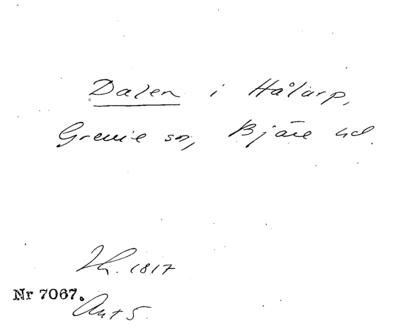 Dalen i Hålarp,
Grevie sn, Bjäre hd.
Lh. 1817
Nr 7067.
Ant 5.